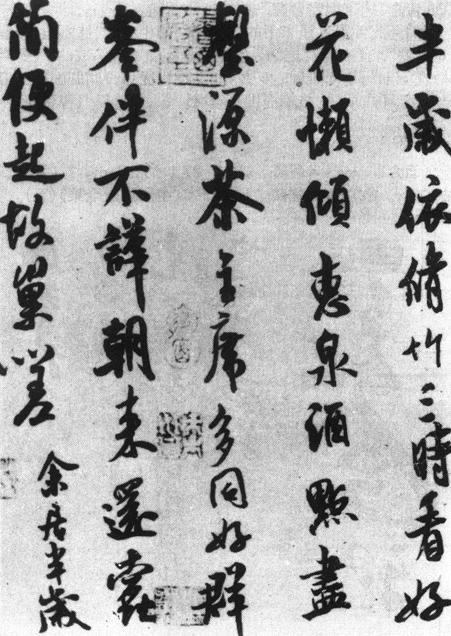 半歲依脩竹三時看好
花懶傾惠泉酒點盡
壑源茶主席多同好群
峯伴不譁朝来還蠹
簡便起故巢嗟
余居半歲